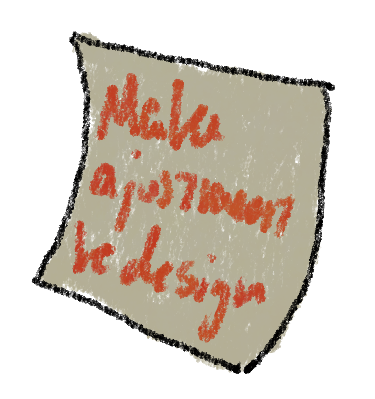 Make
ajustment
be design